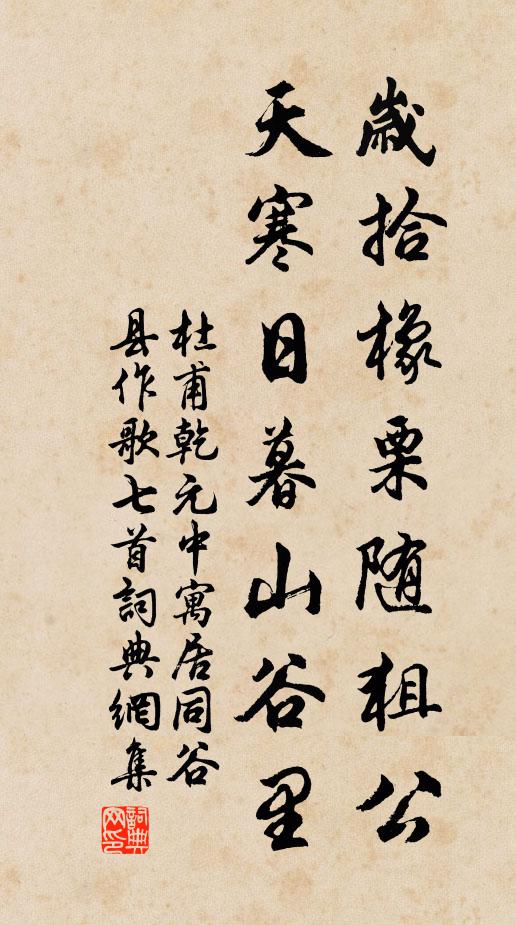 歲拾橡栗随狙公
天寒日暮山谷里
杜甫乾元中寓居同谷
县作歌七首詞典網集
詞典网印